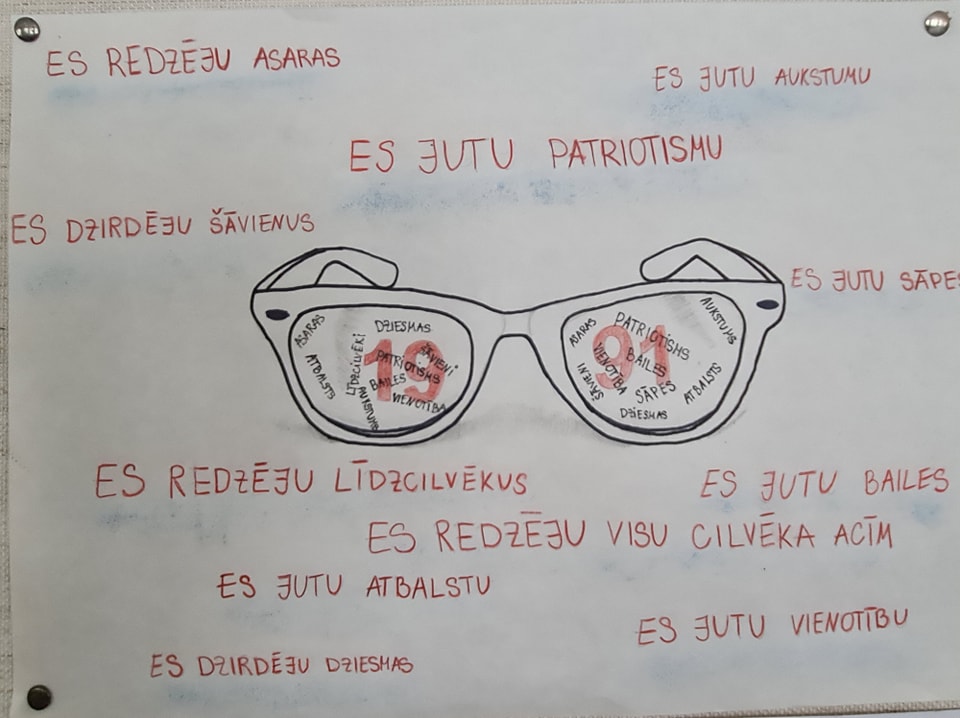 ES REDZĒJU ASARAS
ES JUTU AUKSTUMU
ES JUTU PATRIOTISMU
ES DZIRDĒJU ŠĀVIENUS
ES JUTU SĀPES
ASARAS
DZIESMAS
LĪDZCILVĒKI
ŠĀVIENI
ATBALSTS
19
PATRIOTISMS
BAILES
VIENOTĪBA
AUKSTUMS
ASARAS
PATRIOTISMS
AUKSTUMS
91
VIENOTĪBA
BAILES
ŠĀVIENI
SĀPES
ATBALSTS
DZIESMAS
ES REDZĒJU LĪDZCILVĒKUS
ES JUTU BAILES
ES REDZĒJU VISU CILVĒKA ACĪM
ES JUTU ATBALSTU
ES JUTU VIENOTĪBU
ES DZIRDĒJU DZIESMAS